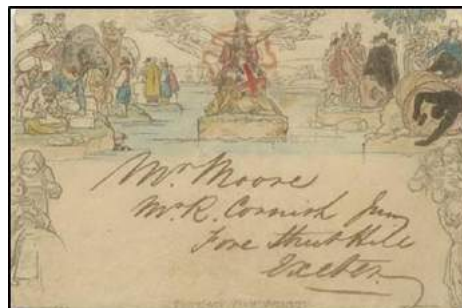 Mr. Moore
Mr. R. Cornish Jun
Fore Street Hill
Exeter